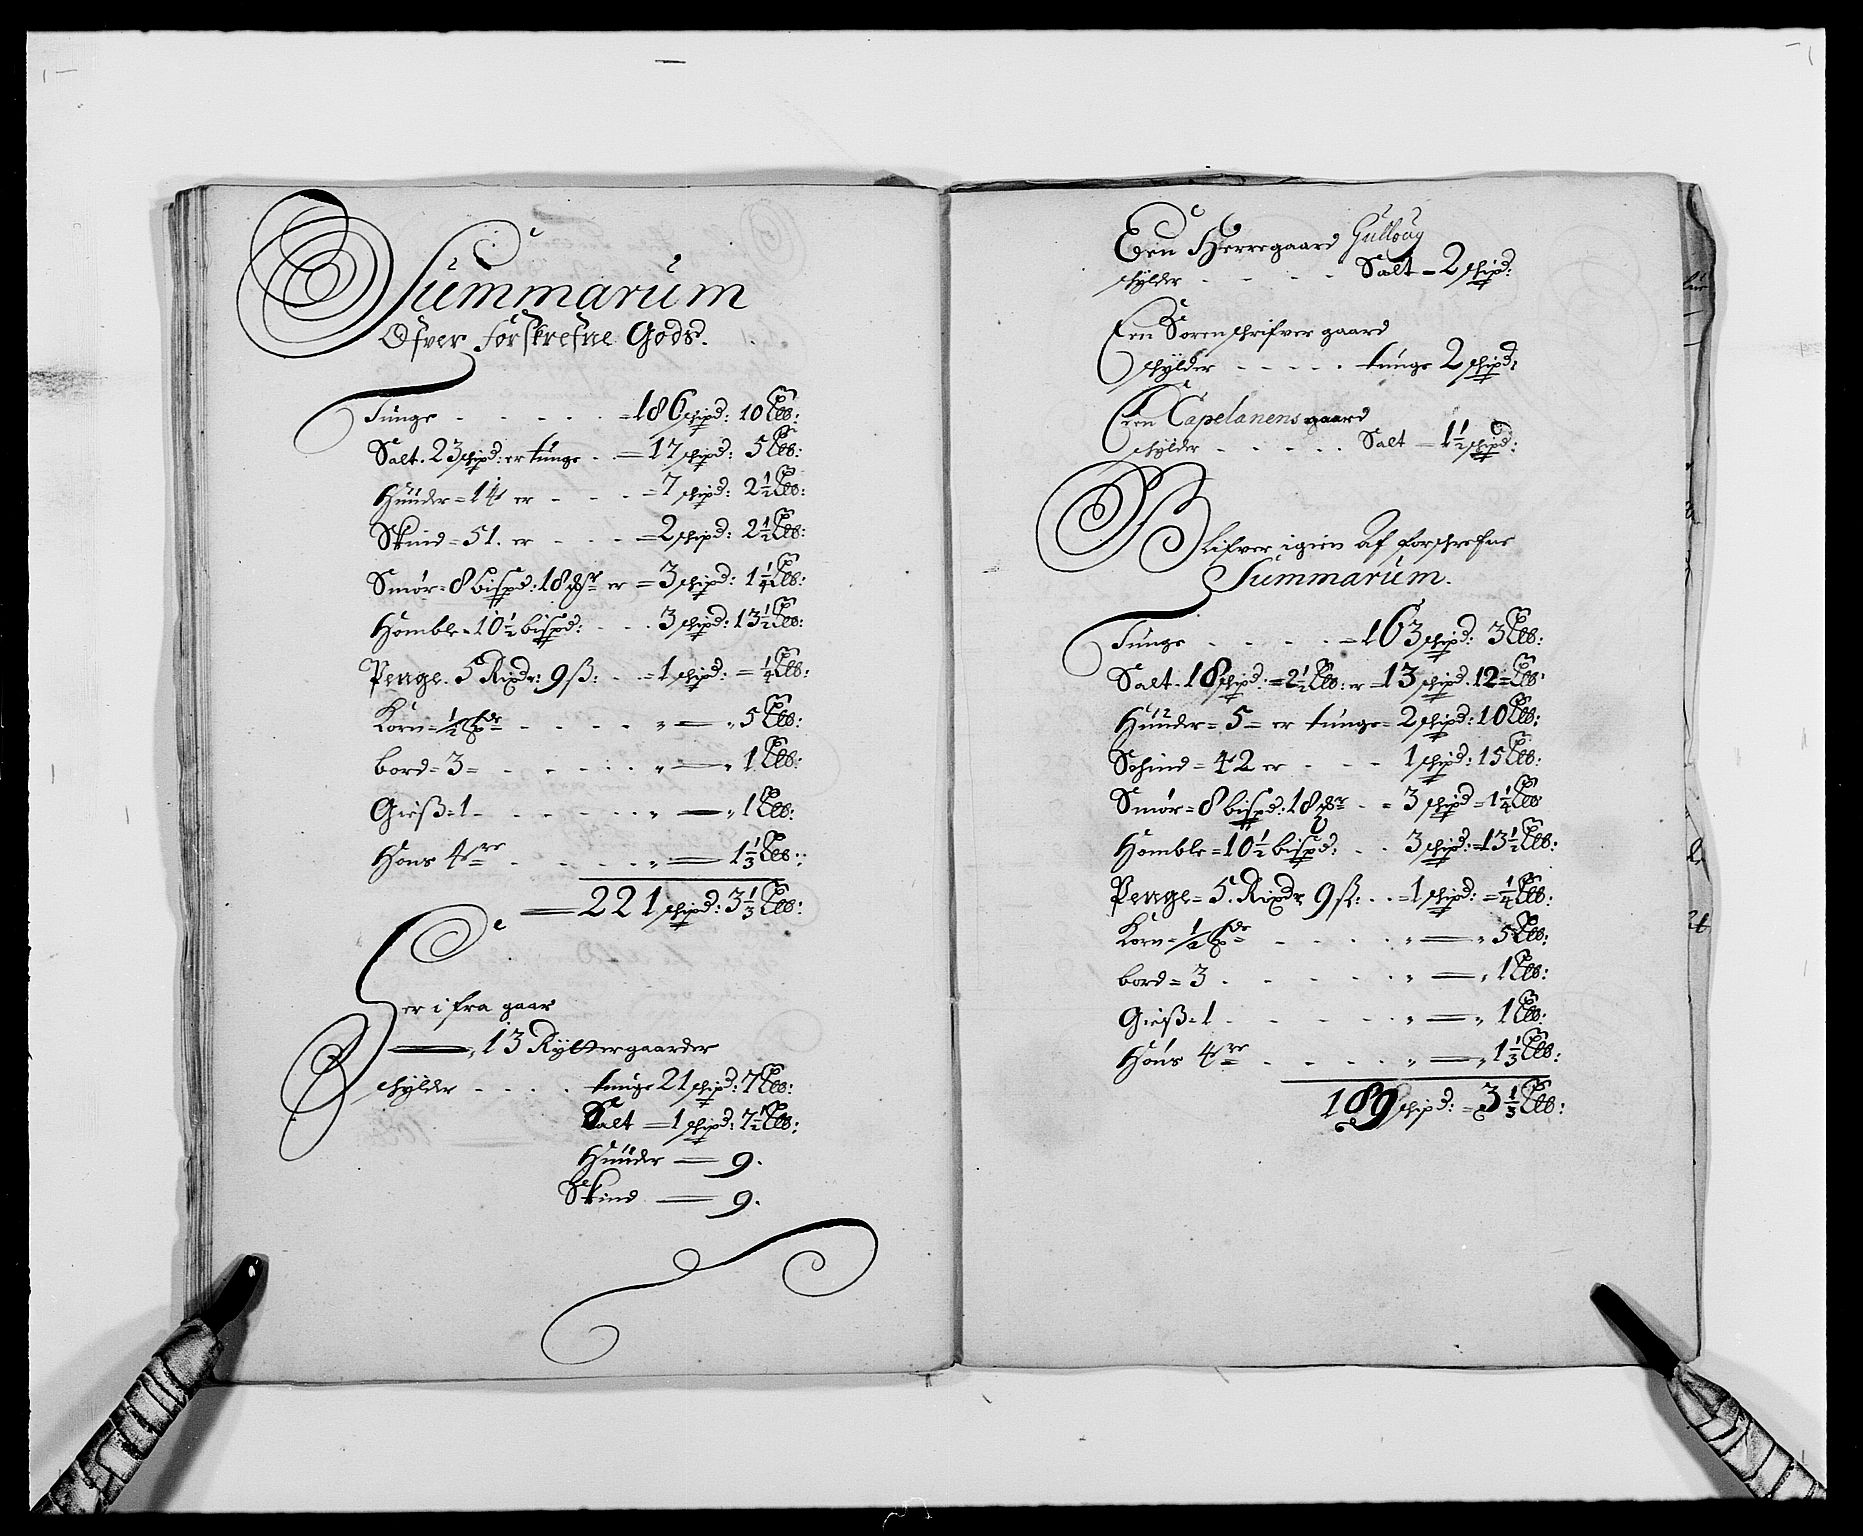 Summarum
Ofver forskrefne Gods.
Tunge - - - - - = 186 schipd: 10 Lb:
Salt. 23 schipd: er tunge . = 17 schipd: 5 Lb:
Huuder = 14 er - - - = 7 schipd: 2½ Lb:
Skind = 51. er - - - = 2 schipd: 2½ Lb:
Smør = 8 bispd: 18 mr er = 3 schipd: 1¼ Lb:
Homble = 10½ bispd: - - . 3 schipd: 13½ Lb:
Penge. 5 Rixdr: 9 ß: . . = 1 schipd: = ¼ Lb:
Korn = ½ pde - - - - „ — „ 5 Lb:
bord = 3 = - - - - „ — „ 1 Lb:
Gieß = 1 - - - - - „ — „ 1 Lb:
Høns 4re . - - - - „ — 1⅓ Lb:
221 schipd: 3⅓ Lb:
Her ifra gaar
— 13 Rytter gaarder
schylder - - - - tunge 21 schipd: 7 Lb:
Salt = 1 schipd: 7½ Lb:
Huuder — 9.
Skind — 9.
Een Herregaard Gulloug
schylder - - - - Salt = 2 schipd:
Een Sorenschrifver gaard
schylder - - - - . tunge 2 schipd:
Een Capelanens gaard
schylder - - - - . Salt = 1½ schipd:
Blifver igien Af forschrefne
Summarum.
Tunge - - - - - = 163 schipd: 3 Lb:
Salt = 18 schipd: = 2½ Lb: er = 13 schipd. 12 = Lb:
Huuder = 5 = er tunge = 2 schipd: 10 Lb:
Schind = 42 er - - - 1 schipd: 15 Lb:
Smør = 8 bispd: 18 mr - = 3 schipd = 1¼ Lb
Homble = 10½ bispd: . . 3 schipd: = 13½ Lb:
Penge = 5. Rixdr 9 ß: . . = 1 schipd: = ¼ Lb:
Korn = ½ pde - - - - „ — „ 5 Lb:
bord = 3 . - - - - „ — „ 1 Lb:
Gieß = 1 - - - - - „ — „ 1 Lb:
Høns 4re . - - - - „ — „ 1⅓ Lb:
189 schipd: = 3⅓ Lb: